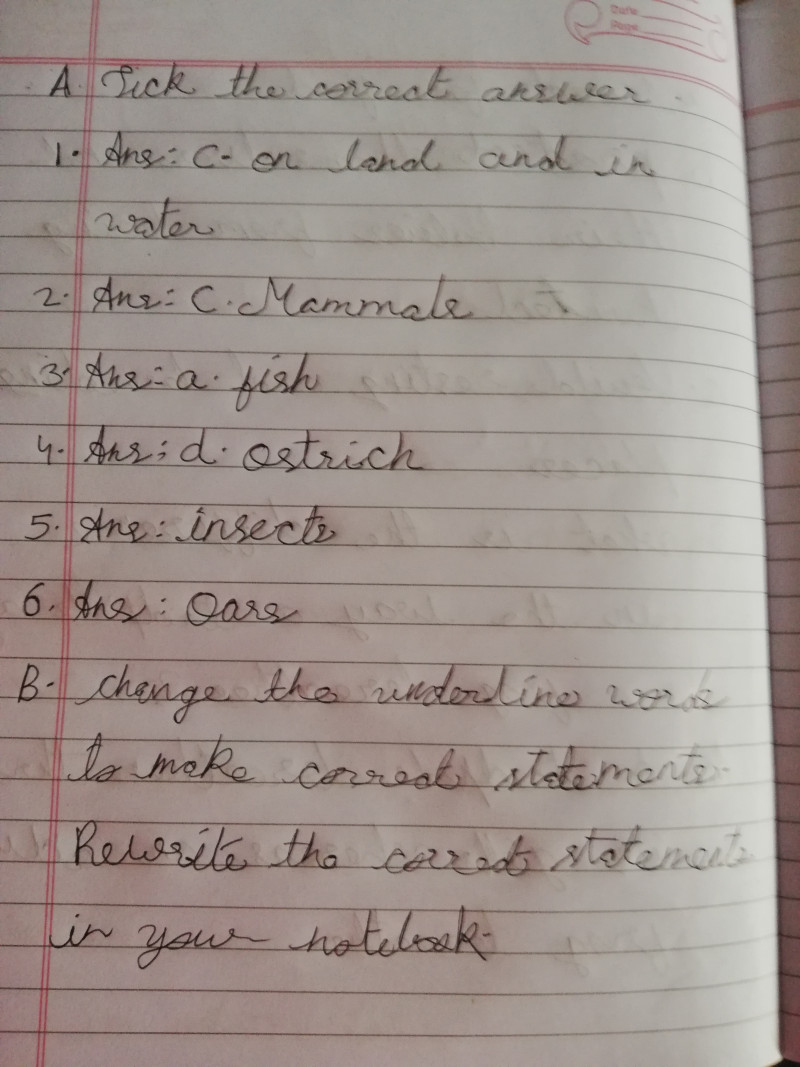 Date
Page
A. Tick the correct answer.
1. Ans: C- on land and in
water
2. Ans: C. Mammals
3. Ans: a. fish
4. Ans: d. ostrich
5. Ans: insects
6. Ans: Oars
B. change the underline words
to make correct statements.
Rewrite the correct statements
in your notebook.